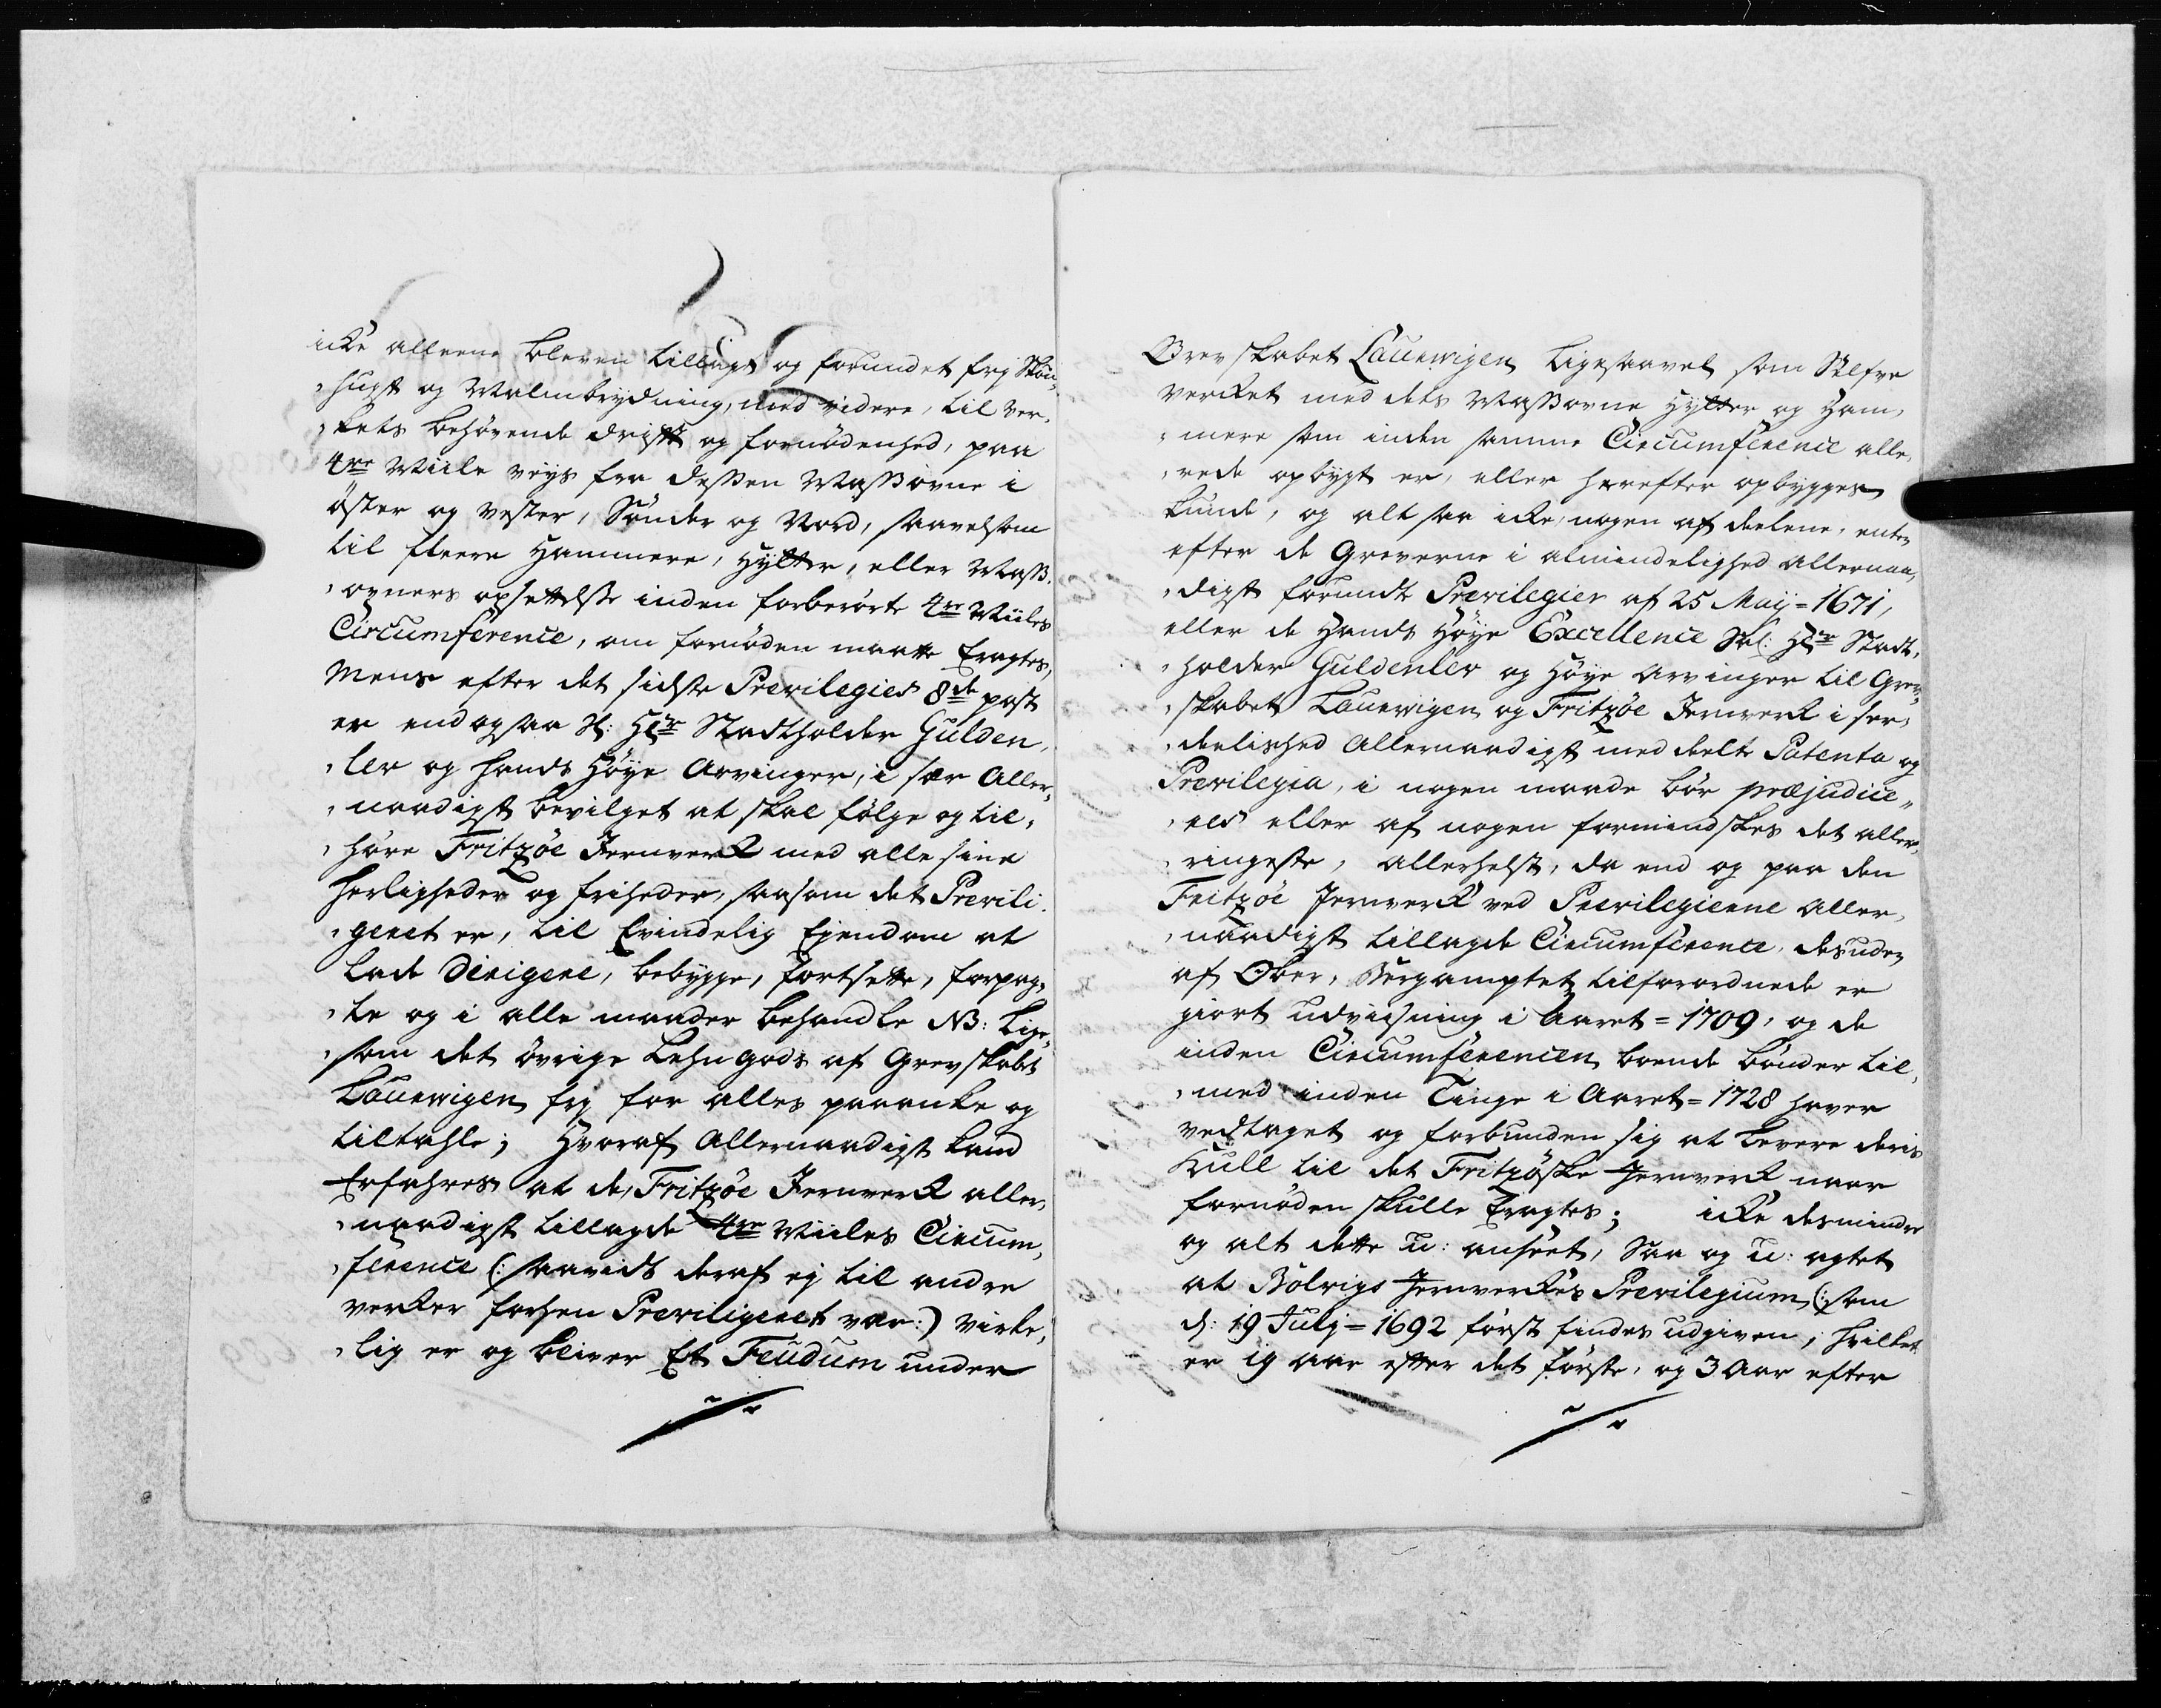 icke alleene bleven tillagt og forundet frj Skou¬
„hugst og Malmbrydning, med videre, til ver¬
„kets behøvende drift og fornødenhed, paa
4re Miile veys fra dessen Massovne i
öster og vester, Sönder og Nord, saavelsom
til fleere Hammere, Hytter, eller Mass¬
„ovners opsettelse inden forberörte 4re Miiles
Circumference, om fornöden maatte Eragtes,
Mens efter det sidste Previlegies 8de post
er end ogsaa Sl: Hr Stadtholder Gulden¬
„lev og hands Höye Arvinger, i sær Aller¬
„naadigst bevilget at skal fölge og til¬
„höre Fritzöe Jernverk med alle sine
herligheder og friheder, saasom det Previli¬
„geret er, til Evindelig Ejendom at
lade dirigere, bebygge, fortsette, forpag¬
„te og i alle maader behandle NB: lige¬
„som det övrige Lehn gods af Grevskabet
Laurwigen frj for alles paaanke og
tiltahle; Hvoraf Allernaadigst kand
Erfahres at de, Fritzöe Jernverk aller¬
„naadigst tillagde 4re Miiles Circum¬
„ference (: saavidt deraf ej til andre
verker forhen Previligeret var:) virke¬
„lig er og bliver Et Feudum under
Grevskabet Laurwigen ligesaavel som Sielfve
verket med dets Massovne Hytter og Ham¬
„mere som inden samme Circumference alle¬
„rede opbygt er, eller herefter opbygges
kunde, og alt saa icke, nogen af deelene, enten
efter de Greverne i almindelighed allernaa¬
„digst forundte Previlegier af 25 Maij = 1671,
eller de Hands Höye Excellence Sal: Hr Stadt¬
„holder Guldenlev og Höye Arvinger til Grev¬
„skabet Laurwigen og Fritzöe Jernverk i sær¬
„deelished Allernaadigst med deelte Patenta og
Previlegia, i nogen maade bör præjudice¬
„res eller af nogen formindskes det aller¬
„ringeste, allerhelst, da end og paa den
Fritzöe Jernverk ved Previlegierne Aller¬
„naadigst tillagde Circumference, desuden
af Ober, Bergamptet tilforordnede er
giort udviisning i Aaret = 1709, og de
inden Circumferencen boende bönder til¬
„med inden Tinge i Aaret = 1728 haver
vedtaget og forbunden sig at levere deris
Kull til det Fritzöske Jernverk naar
fornöden skulle Eragtes; icke desmindre
og alt dette u: anseet, Saa og u: agtet
at Bolvigs Jernverkes Previlegium (: som
d: 19 Julj = 1692 först findes udgiven, hvilket
er 19 aar efter det förste, og 3 Aar efter